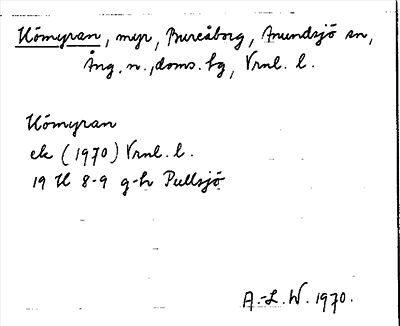 Kömyran, myr, Bureåborg, Anundsjö sn,
Ång. n., doms. hg, Vrnl. l.
Kömyran
ek (1970) Vrnl. l.
19 H 8-9 g-h Pullsjö
A.-L. W. 1970.